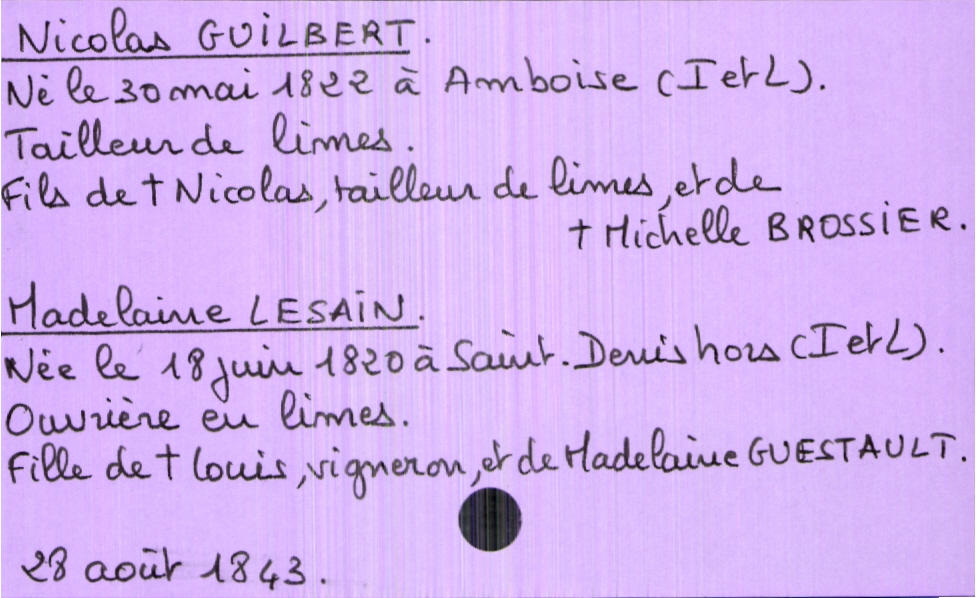 Nicolas GUILBERT.
Né le 30 mai 1822 à Amboise (I et L).
Tailleur de limes.
Fils de † Nicolas, tailleur de limes, et de
† Michelle BROSSIER.
Madelaine LESAIN.
Née le 18 juin 1820 à Saint-Denis hors (I et L).
Ouvrière en limes.
Fille de † Louis, vigneron, et de Madelaine GUESTAULT.
28 août 1843.